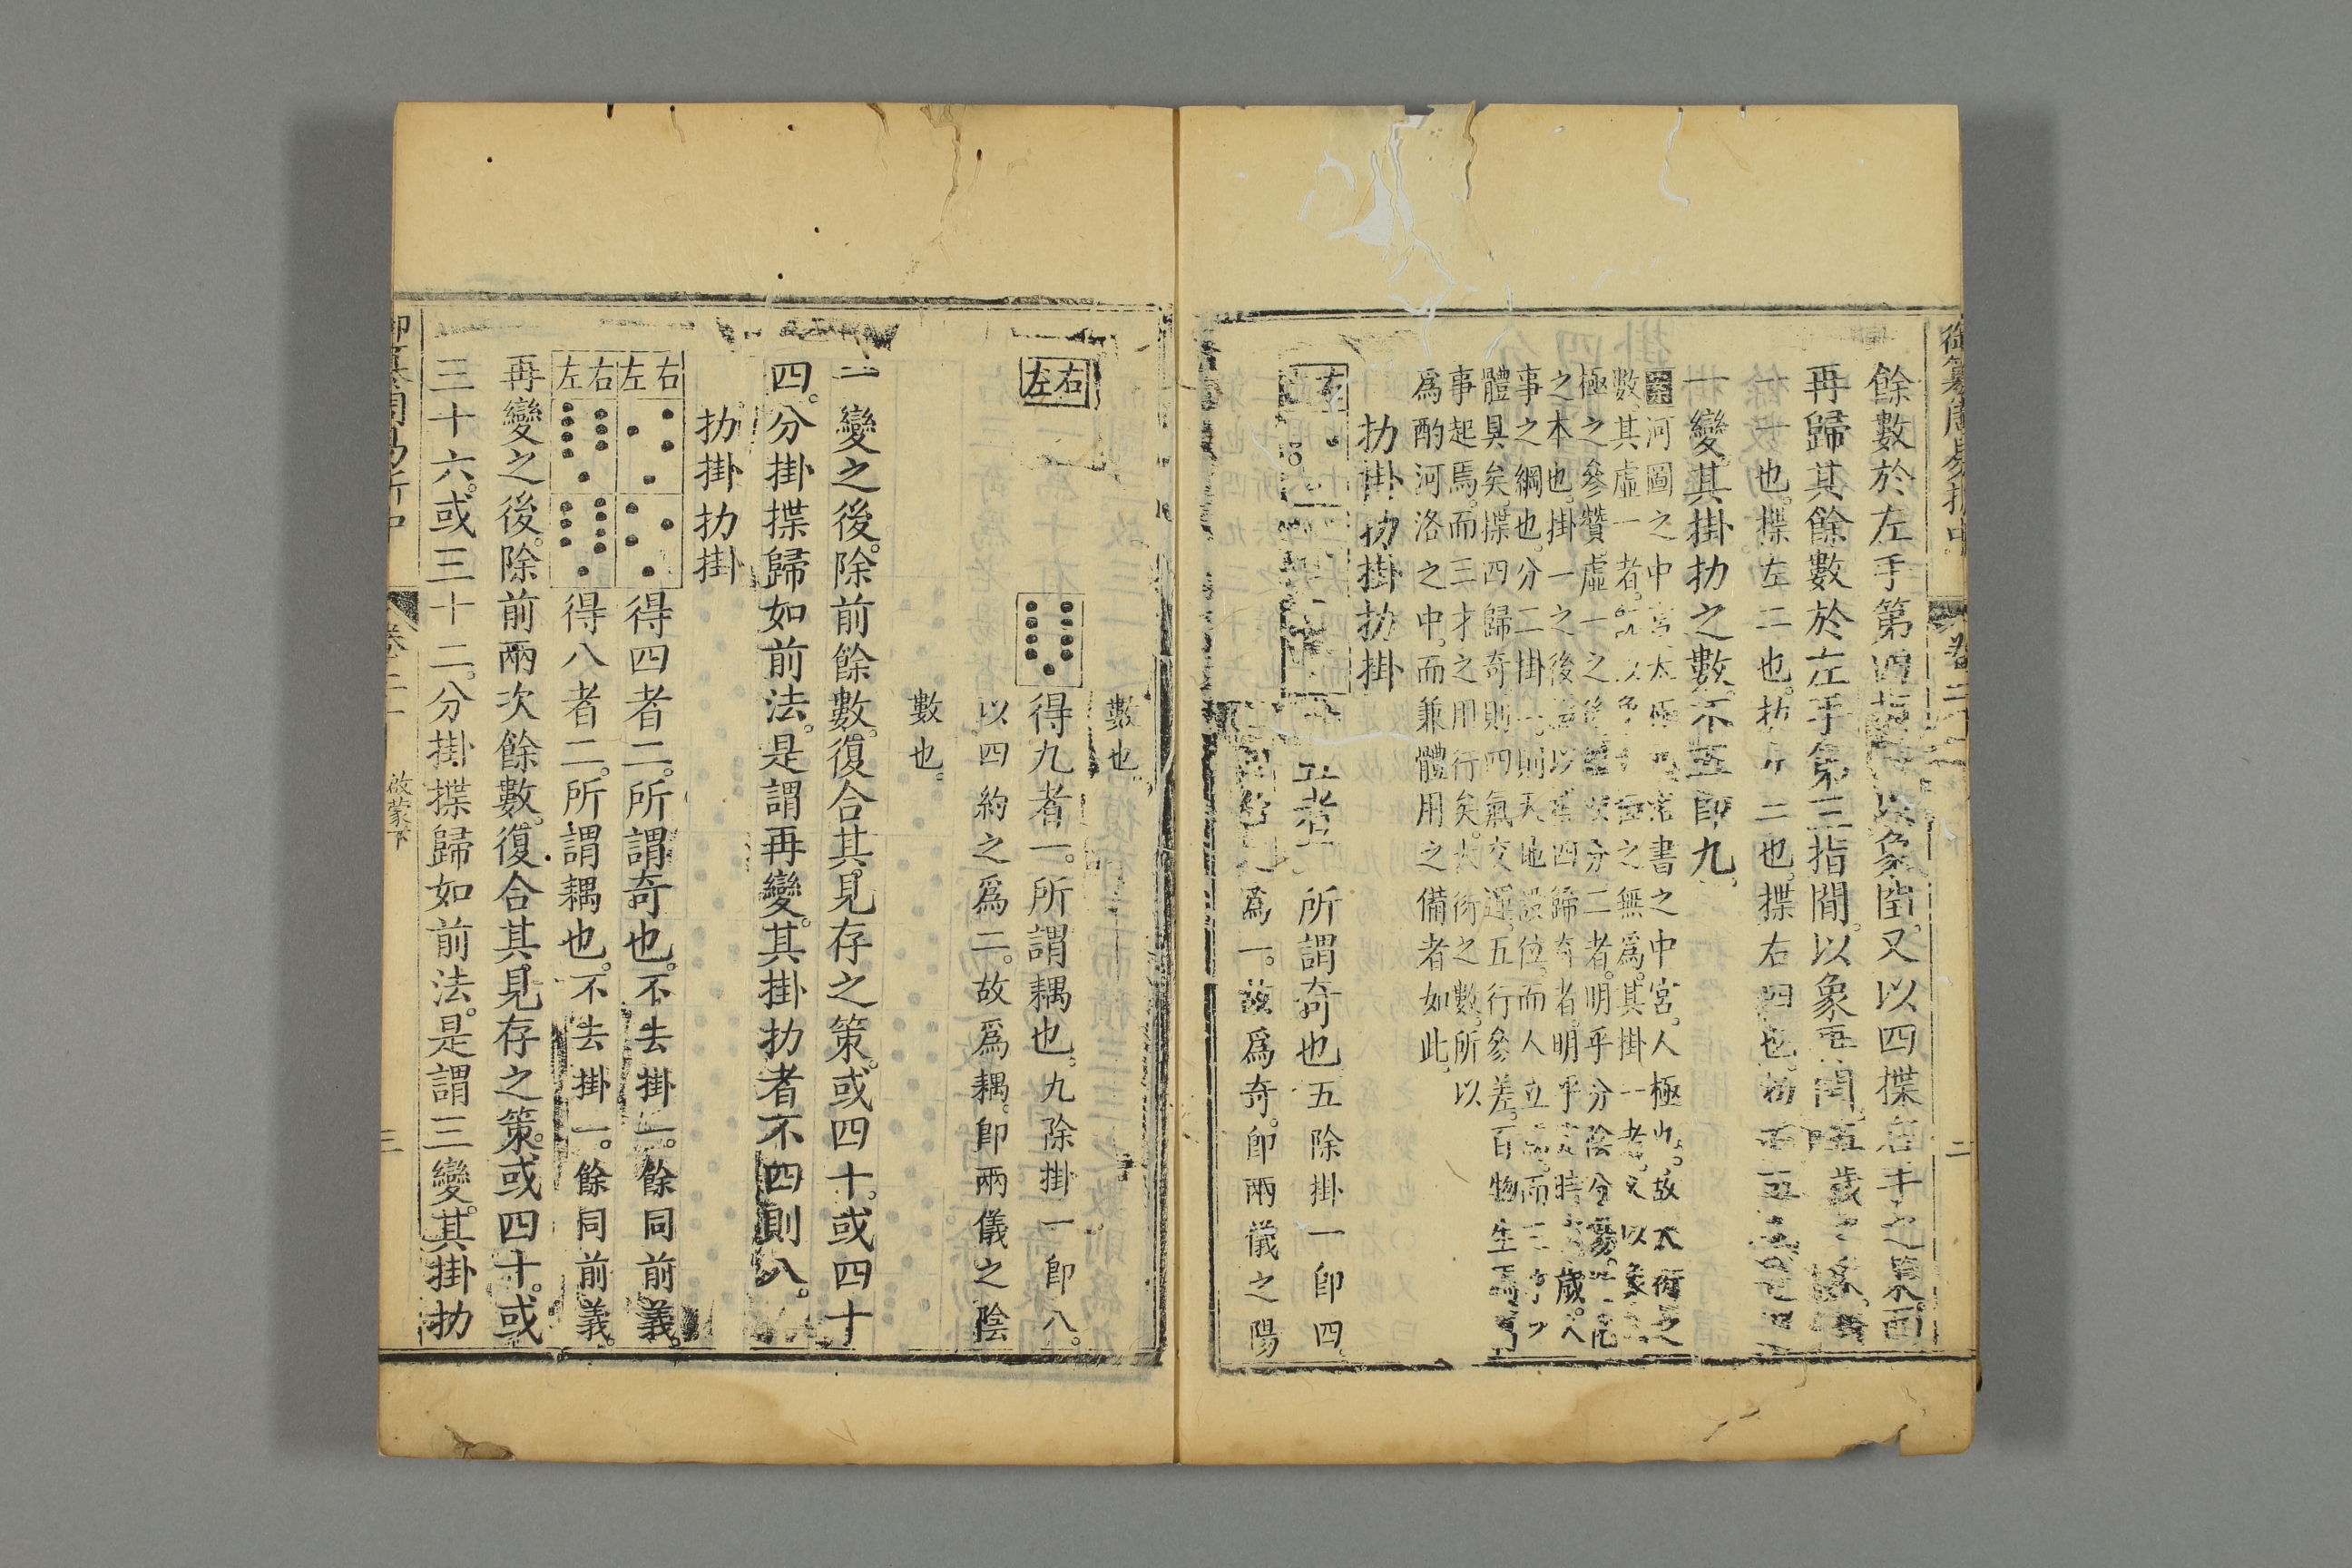 御纂周易折中
卷二十
二
餘數於左手第四指間以象閏又以四揲右手之策而
再歸其餘數於左手第三指間以象再閏五歲之象
一一也揲左二也扐三也揲右四也扐五
一變其掛扐之數不五即九
河圖之中宮太極洛書之中宮人極也故大衍之
數其虛一者之無為其掛一者又以象
極之參贊虛一之後分二者明乎分陰分陽
之本也掛一之後以揲四歸奇者明乎時歲
事之綱也分二掛一則天地設位而人立而三
體具矣揲四歸奇則四氣交運五行參差百物生焉
事起焉而三才之用行矣大衍之數所以
為酌河洛之中而兼體用之備者如此
扐掛扐掛扐掛
右
所謂奇也五除掛一即四
為一故為奇即兩儀之陽
數也
左右
得九者一所謂耦也九除掛一即八
以四約之為二故為耦即兩儀之陰
數也
一變之後除前餘數復合其見存之策或四十或四十
四分掛揲歸如前法是謂再變其掛扐者不四則八
扐掛扐掛
左右
得四者二所謂奇也不去掛一餘同前義
左右
得八者二所謂耦也不去掛一餘同前義
再變之後除前兩次餘數復合其見存之策或四十或
三十六或三十二分掛揲歸如前法是謂三變其掛扐
御纂周易折中
卷二十
啟蒙下
三